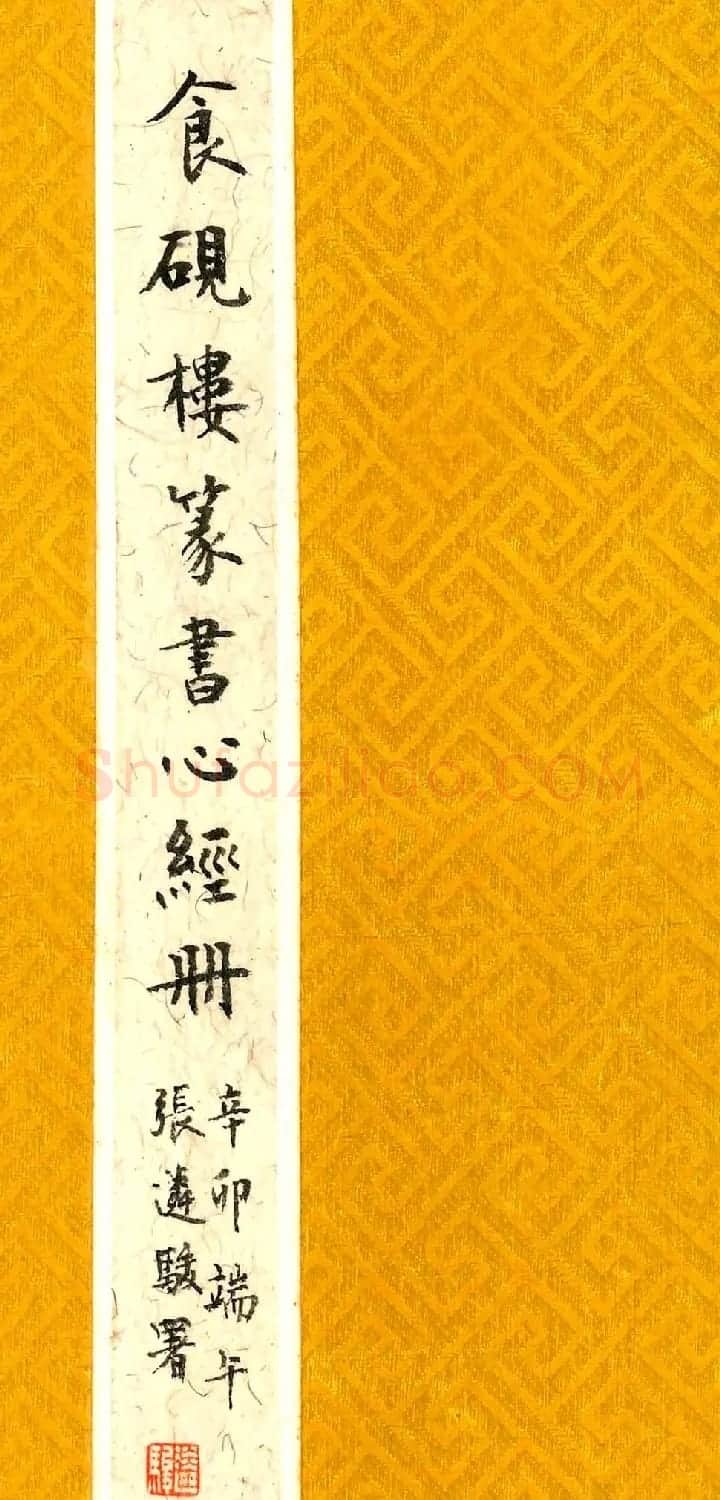 食硯樓篆書心經冊
辛卯端午
張遴駿署
Shufaziliao.COM